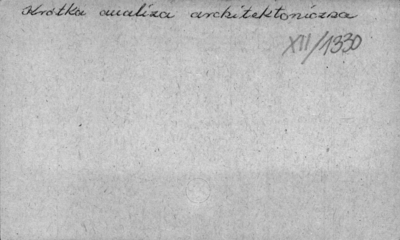 Krótka analiza architektoniczna
XII/1330